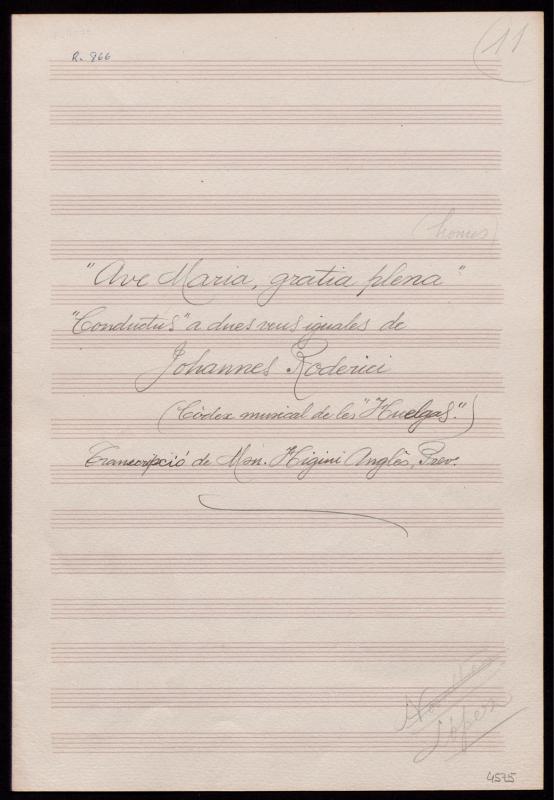 R. 966
11
(homes)
"Ave Maria, gratia plena"
"Conductus" a dues veus iguales de
Johannes Roderici
(Còdex musical de les "Huelgas".)
Transcripció de Mn. Higini Anglès, Prev.
López
4575